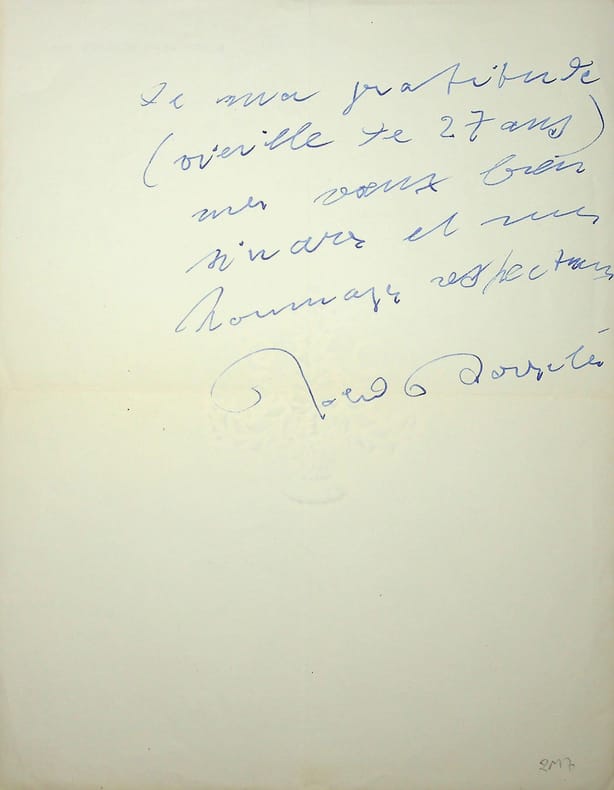 de ma gratitude
(vieille de 27 ans)
mes vœux bien
sincères et mes
hommages respectueux
2117